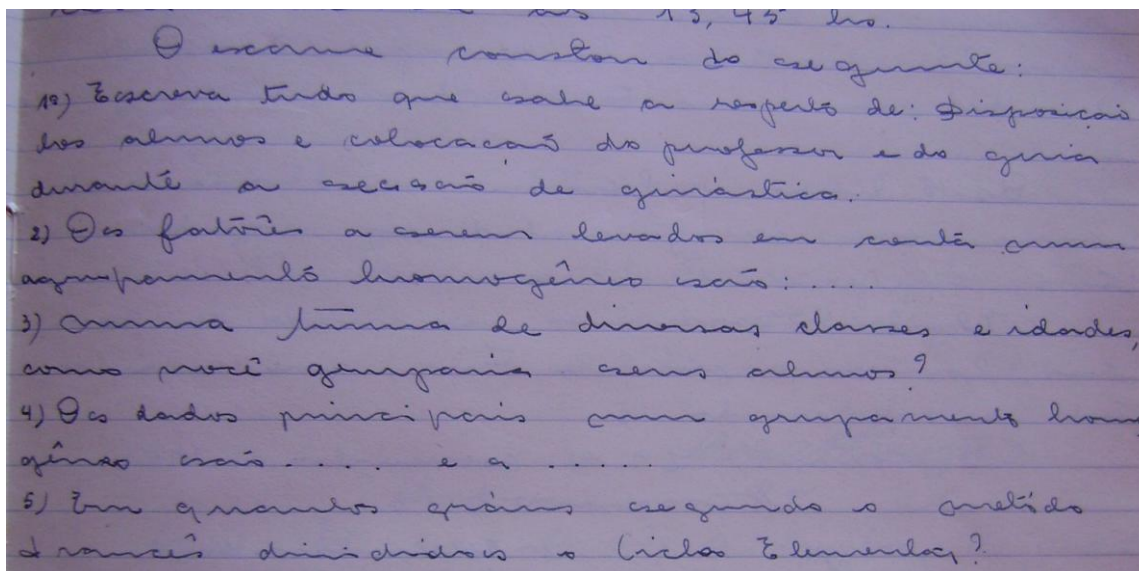 às 13,45 hs.
O exame constou do seguinte:
1º) Escreva tudo que sabe a respeito de: Disposição
dos alunos e colocação do professor e do guia
durante a secsaão de ginástica.
2) Os fatôres a serem levados em conta num
agrupamento homogêneo são: ....
3) Numa turma de diversas classes e idades,
como você gruparia seus alunos?
4) Os dados principais num grupamento homo
gêneo são .... e a .....
5) Em quantos gráus segundo o metódo
francês dividido o Ciclo Elementar?